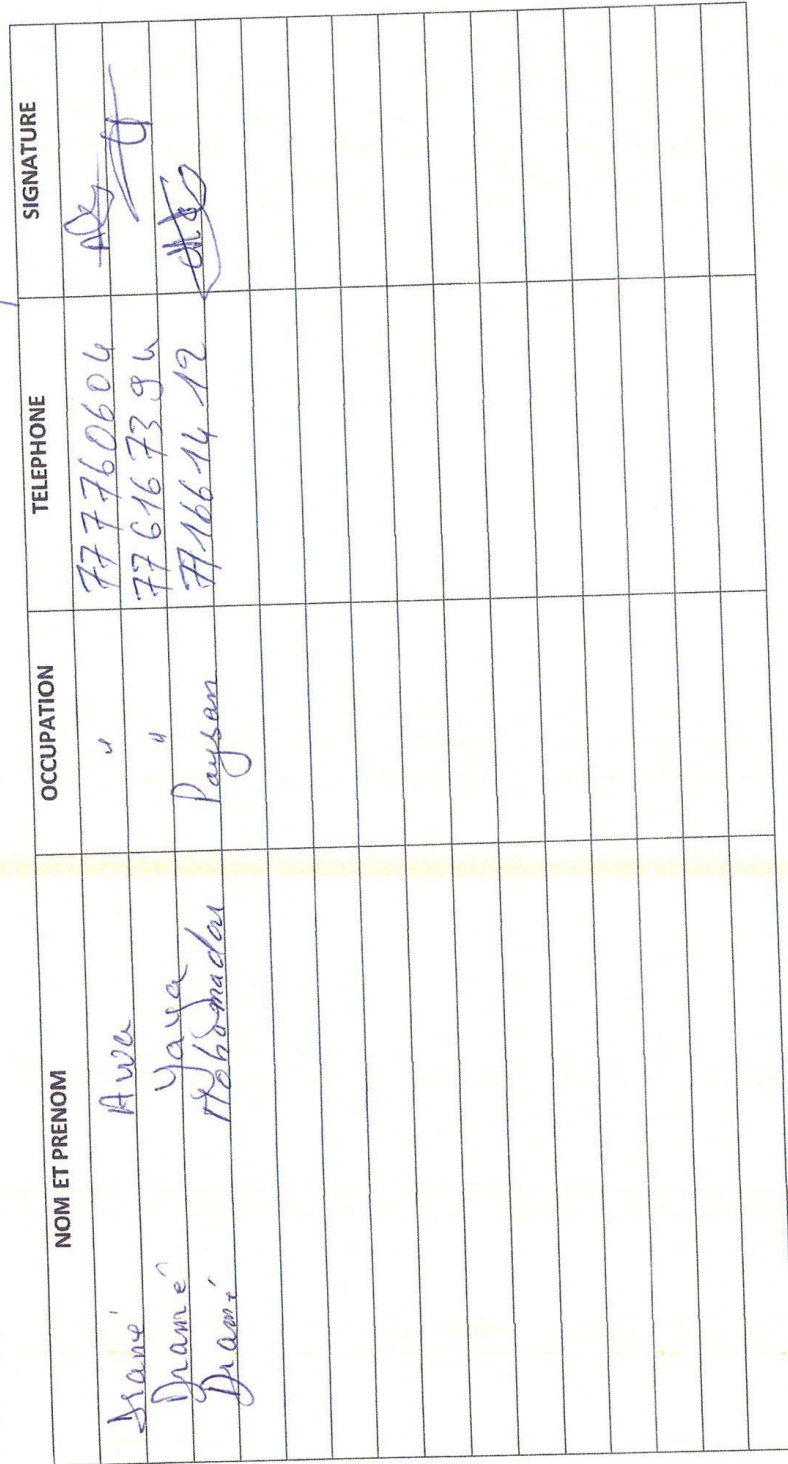 NOM ET PRENOM OCCUPATION TELEPHONE SIGNATURE
Awa " 777760604
Dramé Yaya " 776167394
Dramé Mohamadou Paysan 771661412